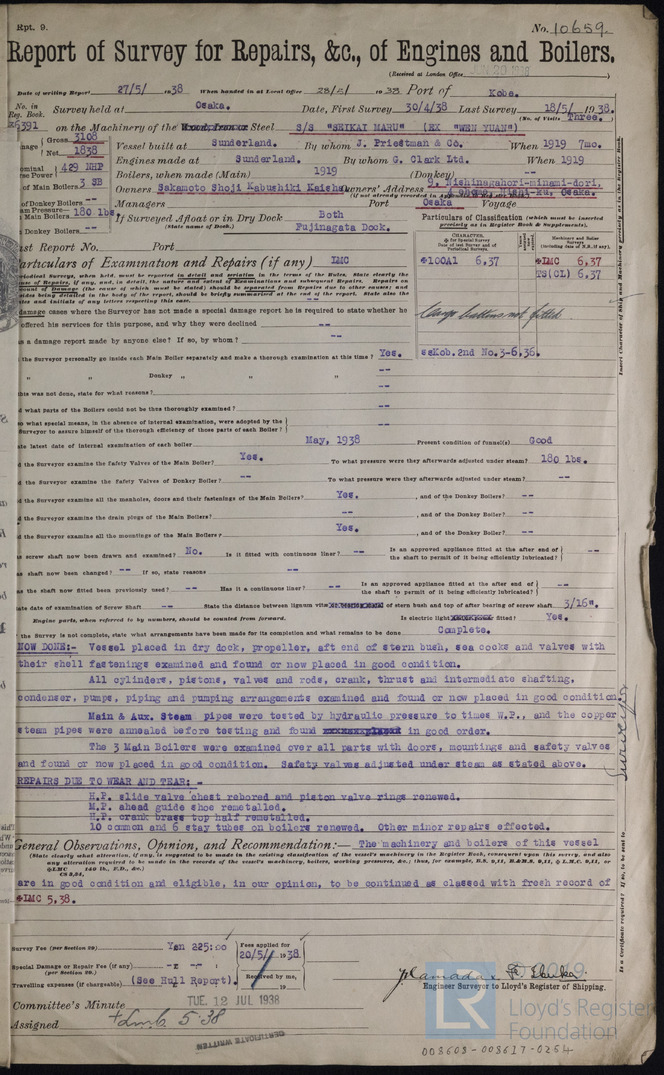 Rpt. 9.
No. 10659.
Report of Survey for Repairs, &c., of Engines and Boilers.
(Received at London Office
Date of writing Report 27/5/ 1938 When handed in at Local Office 28/5/ 1938 Port of Kobe.
No. in Reg. Book. Survey held at Osaka. Date, First Survey 30/4/38 Last Survey 18/5/ 1938.
(No. of Visits Three.)
26391 on the Machinery of the Steel S/S "SEIKAI MARU" (EX "WEN YUAN")
Gross 3108
Net 1838
Vessel built at Sunderland. By whom J. Priestman & Co. When 1919 7mo.
429 NHP Engines made at Sunderland. By whom G. Clark Ltd. When 1919
of Main Boilers 3 SB Boilers, when made (Main) 1919 (Donkey) --
of Donkey Boilers -- Owners Sakamoto Shoji Kabushiki Kaisha Owners' Address 9, Nishinagahori-minami-dori,
(if not already recorded in
4 chome, Nishi-ku, Osaka.
am Pressure 180 lbs. Managers Port Osaka Voyage
Donkey Boilers -- If Surveyed Afloat or in Dry Dock Both
(State name of Dock.) Fujinagata Dock.
Particulars of Classification (which must be inserted precisely as in Register Book & Supplement).
CHARACTER.
Machinery and Boiler Surveys
✠100A1 6,37
✠LMC 6,37
TS(CL) 6,37
Cargo battens not fitted
ssKob.2nd No.3-6,36.
ast Report No. Port
articulars of Examination and Repairs (if any) LMC
damage cases where the Surveyor has not made a special damage report he is required to state whether he
offered his services for this purpose, and why they were declined --
s a damage report made by anyone else? If so, by whom? --
the Surveyor personally go inside each Main Boiler separately and make a thorough examination at this time? Yes.
" " Donkey " " " --
this was not done, state for what reasons? --
d what parts of the Boilers could not be thus thoroughly examined? --
o what special means, in the absence of internal examination, were adopted by the
Surveyor to assure himself of the thorough efficiency of those parts of each Boiler? --
ate latest date of internal examination of each boiler May, 1938 Present condition of funnel(s) Good
d the Surveyor examine the Safety Valves of the Main Boiler? Yes. To what pressure were they afterwards adjusted under steam? 180 lbs.
d the Surveyor examine the Safety Valves of Donkey Boiler? -- To what pressure were they afterwards adjusted under steam? --
d the Surveyor examine all the manholes, doors and their fastenings of the Main Boilers? Yes. , and of the Donkey Boilers? --
d the Surveyor examine the drain plugs of the Main Boilers? -- , and of the Donkey Boiler? --
d the Surveyor examine all the mountings of the Main Boilers? Yes. , and of the Donkey Boiler? --
s screw shaft now been drawn and examined? No. Is it fitted with continuous liner? -- Is an approved appliance fitted at the after end of the shaft to permit of it being efficiently lubricated? --
as shaft now been changed? -- If so, state reasons --
as the shaft now fitted been previously used? -- Has it a continuous liner? -- Is an approved appliance fitted at the after end of the shaft to permit of it being efficiently lubricated? --
ate date of examination of Screw Shaft -- State the distance between lignum vitæ of stern bush and top of after bearing of screw shaft 3/16".
Engine parts, when referred to by numbers, should be counted from forward. Is electric light fitted? Yes.
the Survey is not complete, state what arrangements have been made for its completion and what remains to be done Complete.
NOW DONE:- Vessel placed in dry dock, propeller, aft end of stern bush, sea cocks and valves with
their shell fastenings examined and found or now placed in good condition.
All cylinders, pistons, valves and rods, crank, thrust and intermediate shafting,
condenser, pumps, piping and pumping arrangements examined and found or now placed in good condition.
Main & Aux. Steam pipes were tested by hydraulic pressure to times W.P., and the copper
steam pipes were annealed before testing and found in good order.
The 3 Main Boilers were examined over all parts with doors, mountings and safety valves
and found or now placed in good condition. Safety valves adjusted under steam as stated above.
REPAIRS DUE TO WEAR AND TEAR: -
H.P. slide valve chest rebored and piston valve rings renewed.
M.P. ahead guide shoe remetalled.
H.P. crank brass top half remetalled.
10 common and 6 stay tubes on boilers renewed. Other minor repairs effected.
General Observations, Opinion, and Recommendation:— The machinery and boilers of this vessel
(State clearly what alteration, if any, is suggested to be made in the existing classification of the vessel's machinery in the Register Book, consequent upon this survey, and also
any alteration required to be made in the records of the vessel's machinery, boilers, working pressures, &c.; thus, for example, B.S. 9,11, B.&M.S. 9,11, ✠L.M.C. 9,11, or
✠LMC 140 lb., F.D., &c.)
CS 3,34,
are in good condition and eligible, in our opinion, to be continued as classed with fresh record of
✠LMC 5,38.
Survey Fee (per Section 29) Yen 225:00 Fees applied for
20/5/ 1938
Special Damage or Repair Fee (if any)
(per Section 29.)
Received by me,
Travelling expenses (if chargeable) (See Hull Report). 19
Engineer Surveyor to Lloyd's Register of Shipping.
Committee's Minute TUE. 12 JUL 1938
Assigned +Lmb 5.38
CERTIFICATE WRITTEN
LR
Lloyd's Register
Foundation
008603-008617-0254
Insert Character of Ship and Machinery precisely as in the Register Book.
Is a Certificate required? If so, to be sent to
Surveyors